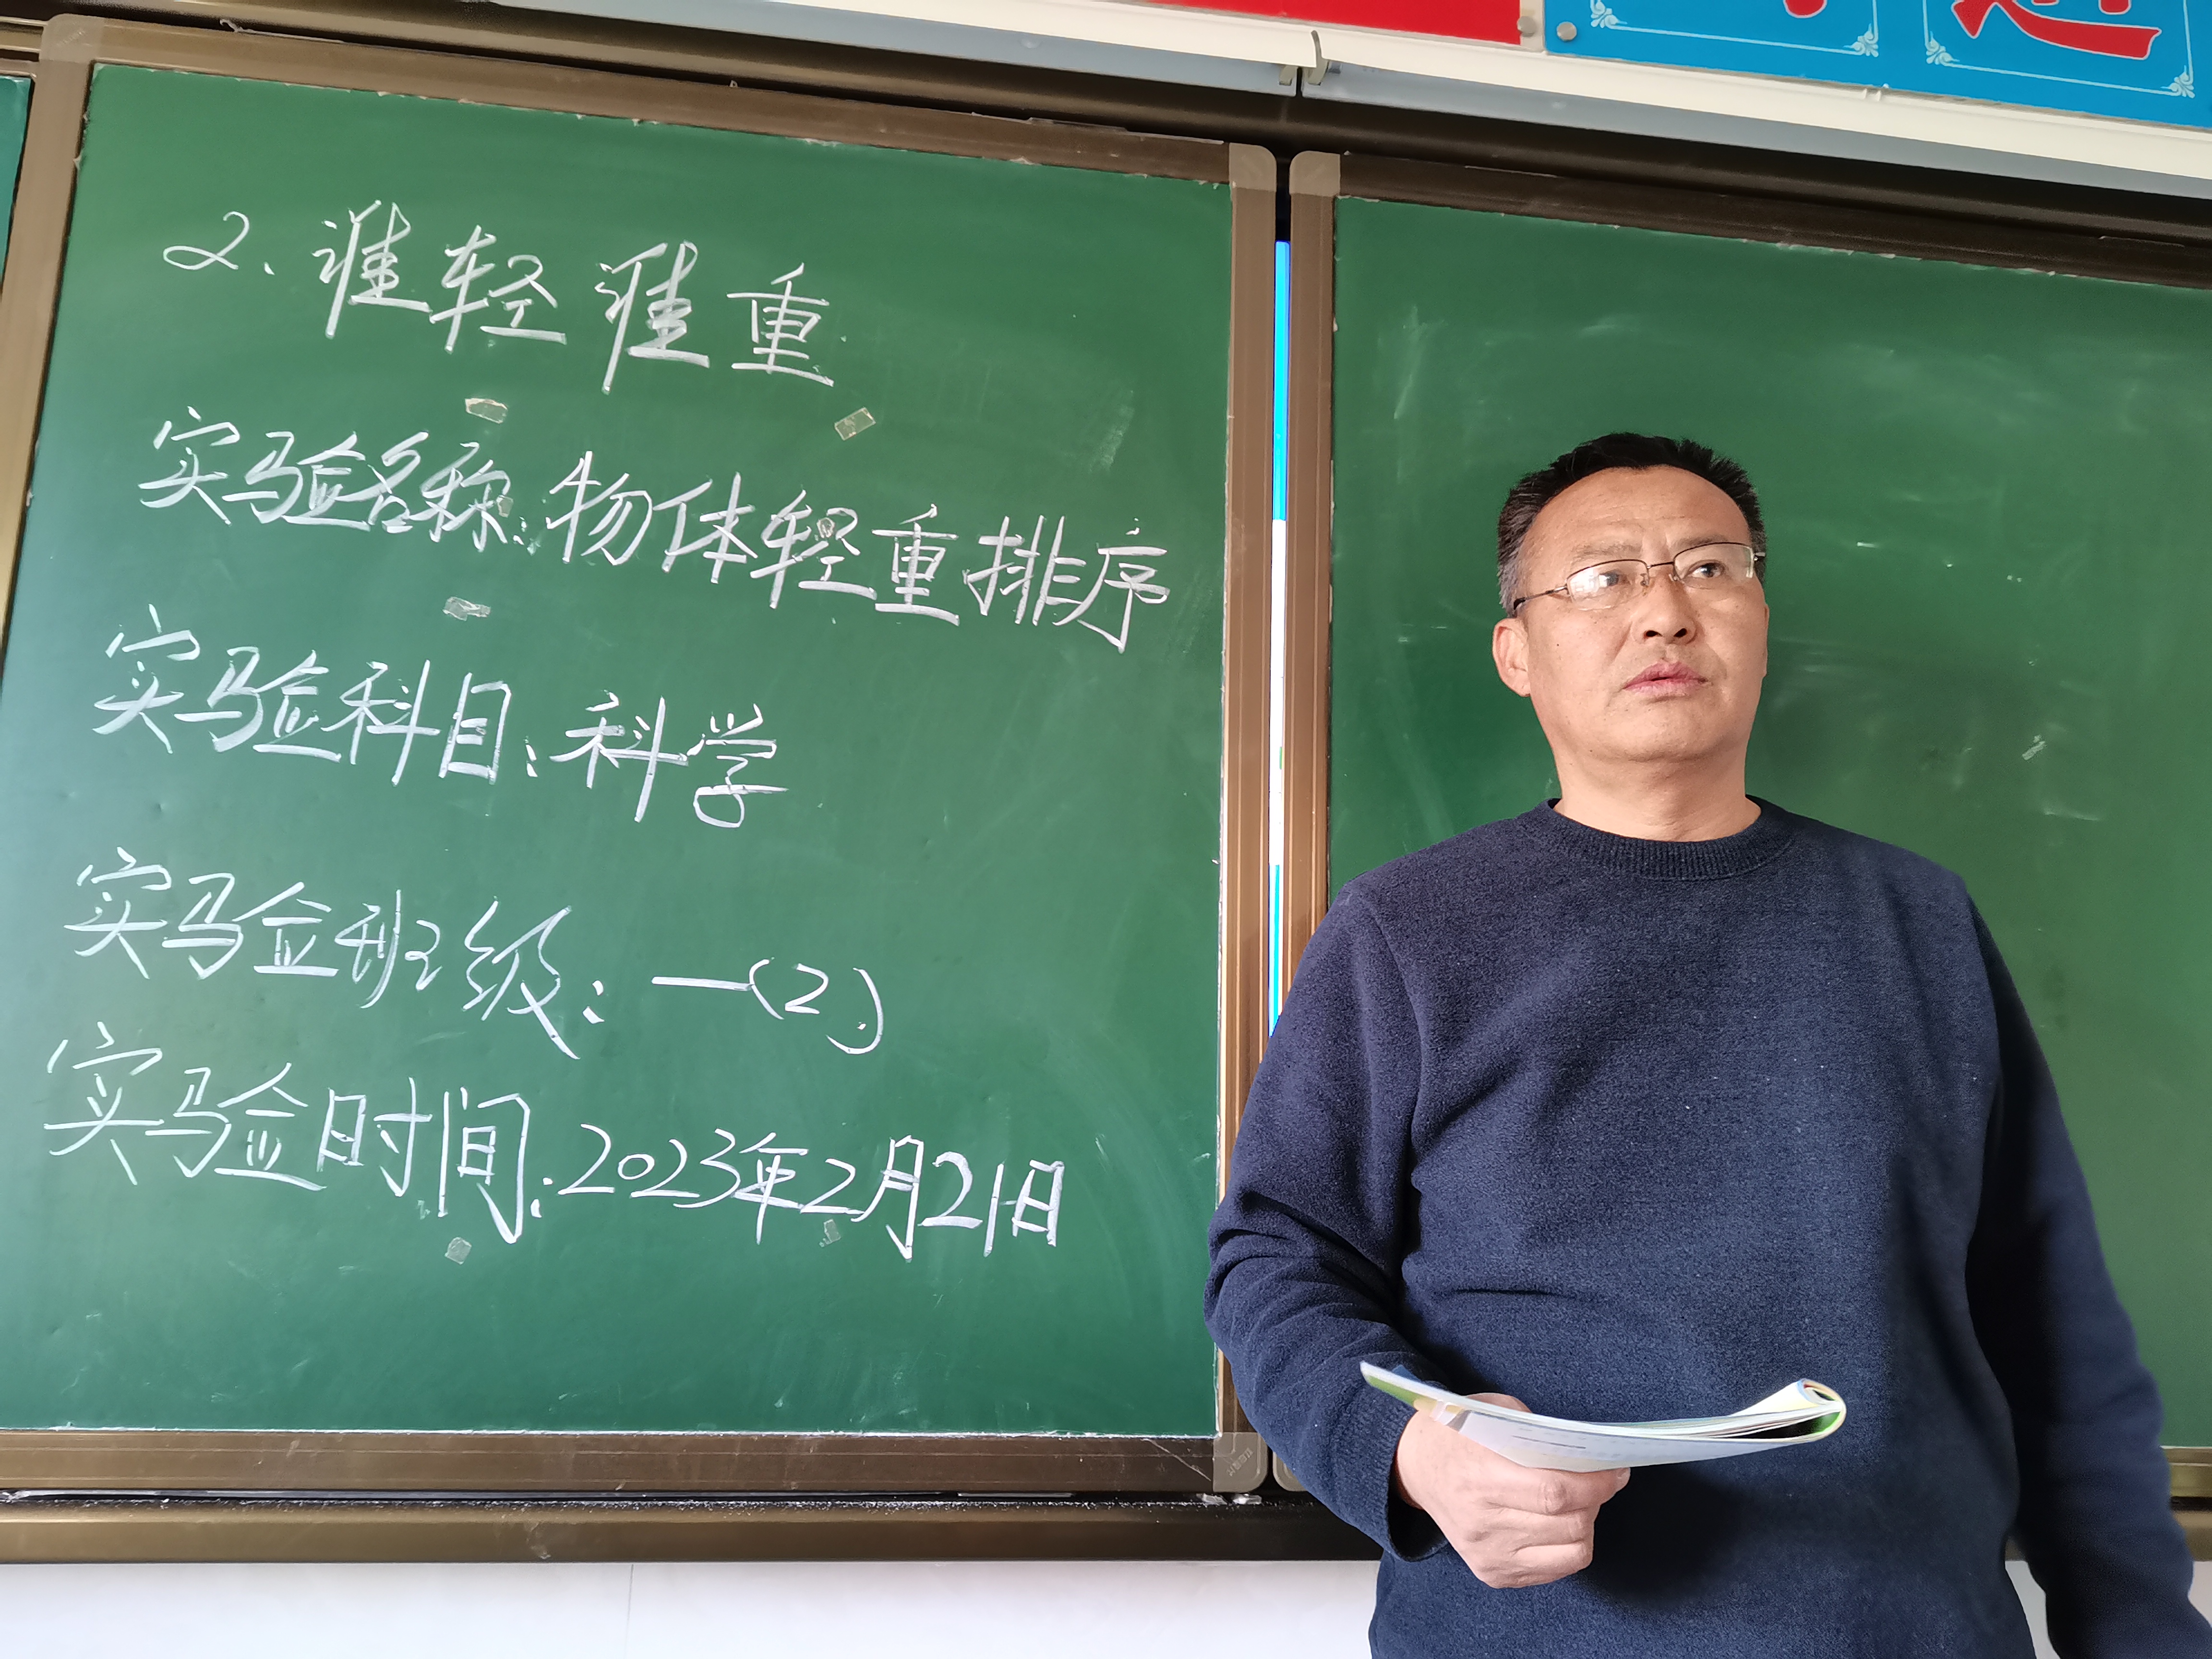 2.谁轻谁重
实验名称:物体轻重排序
实验科目:科学
实验班级:一(2)
实验时间:2023年2月21日